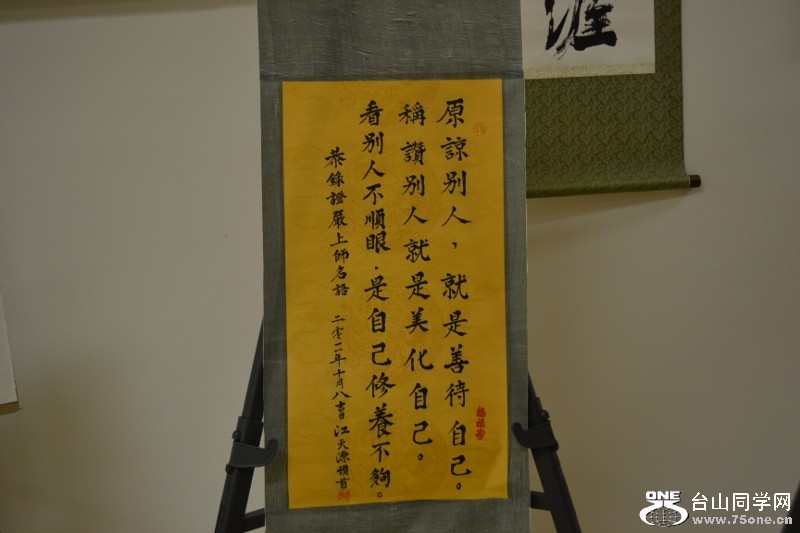 原諒别人，就是善待自己。
稱讚别人就是美化自己。
看别人不順眼．是自己修養不夠。
恭錄證嚴上師名語 二零二年十月八吉日 江天源順首
涯
ONE 台山同学网
www.75one.cn